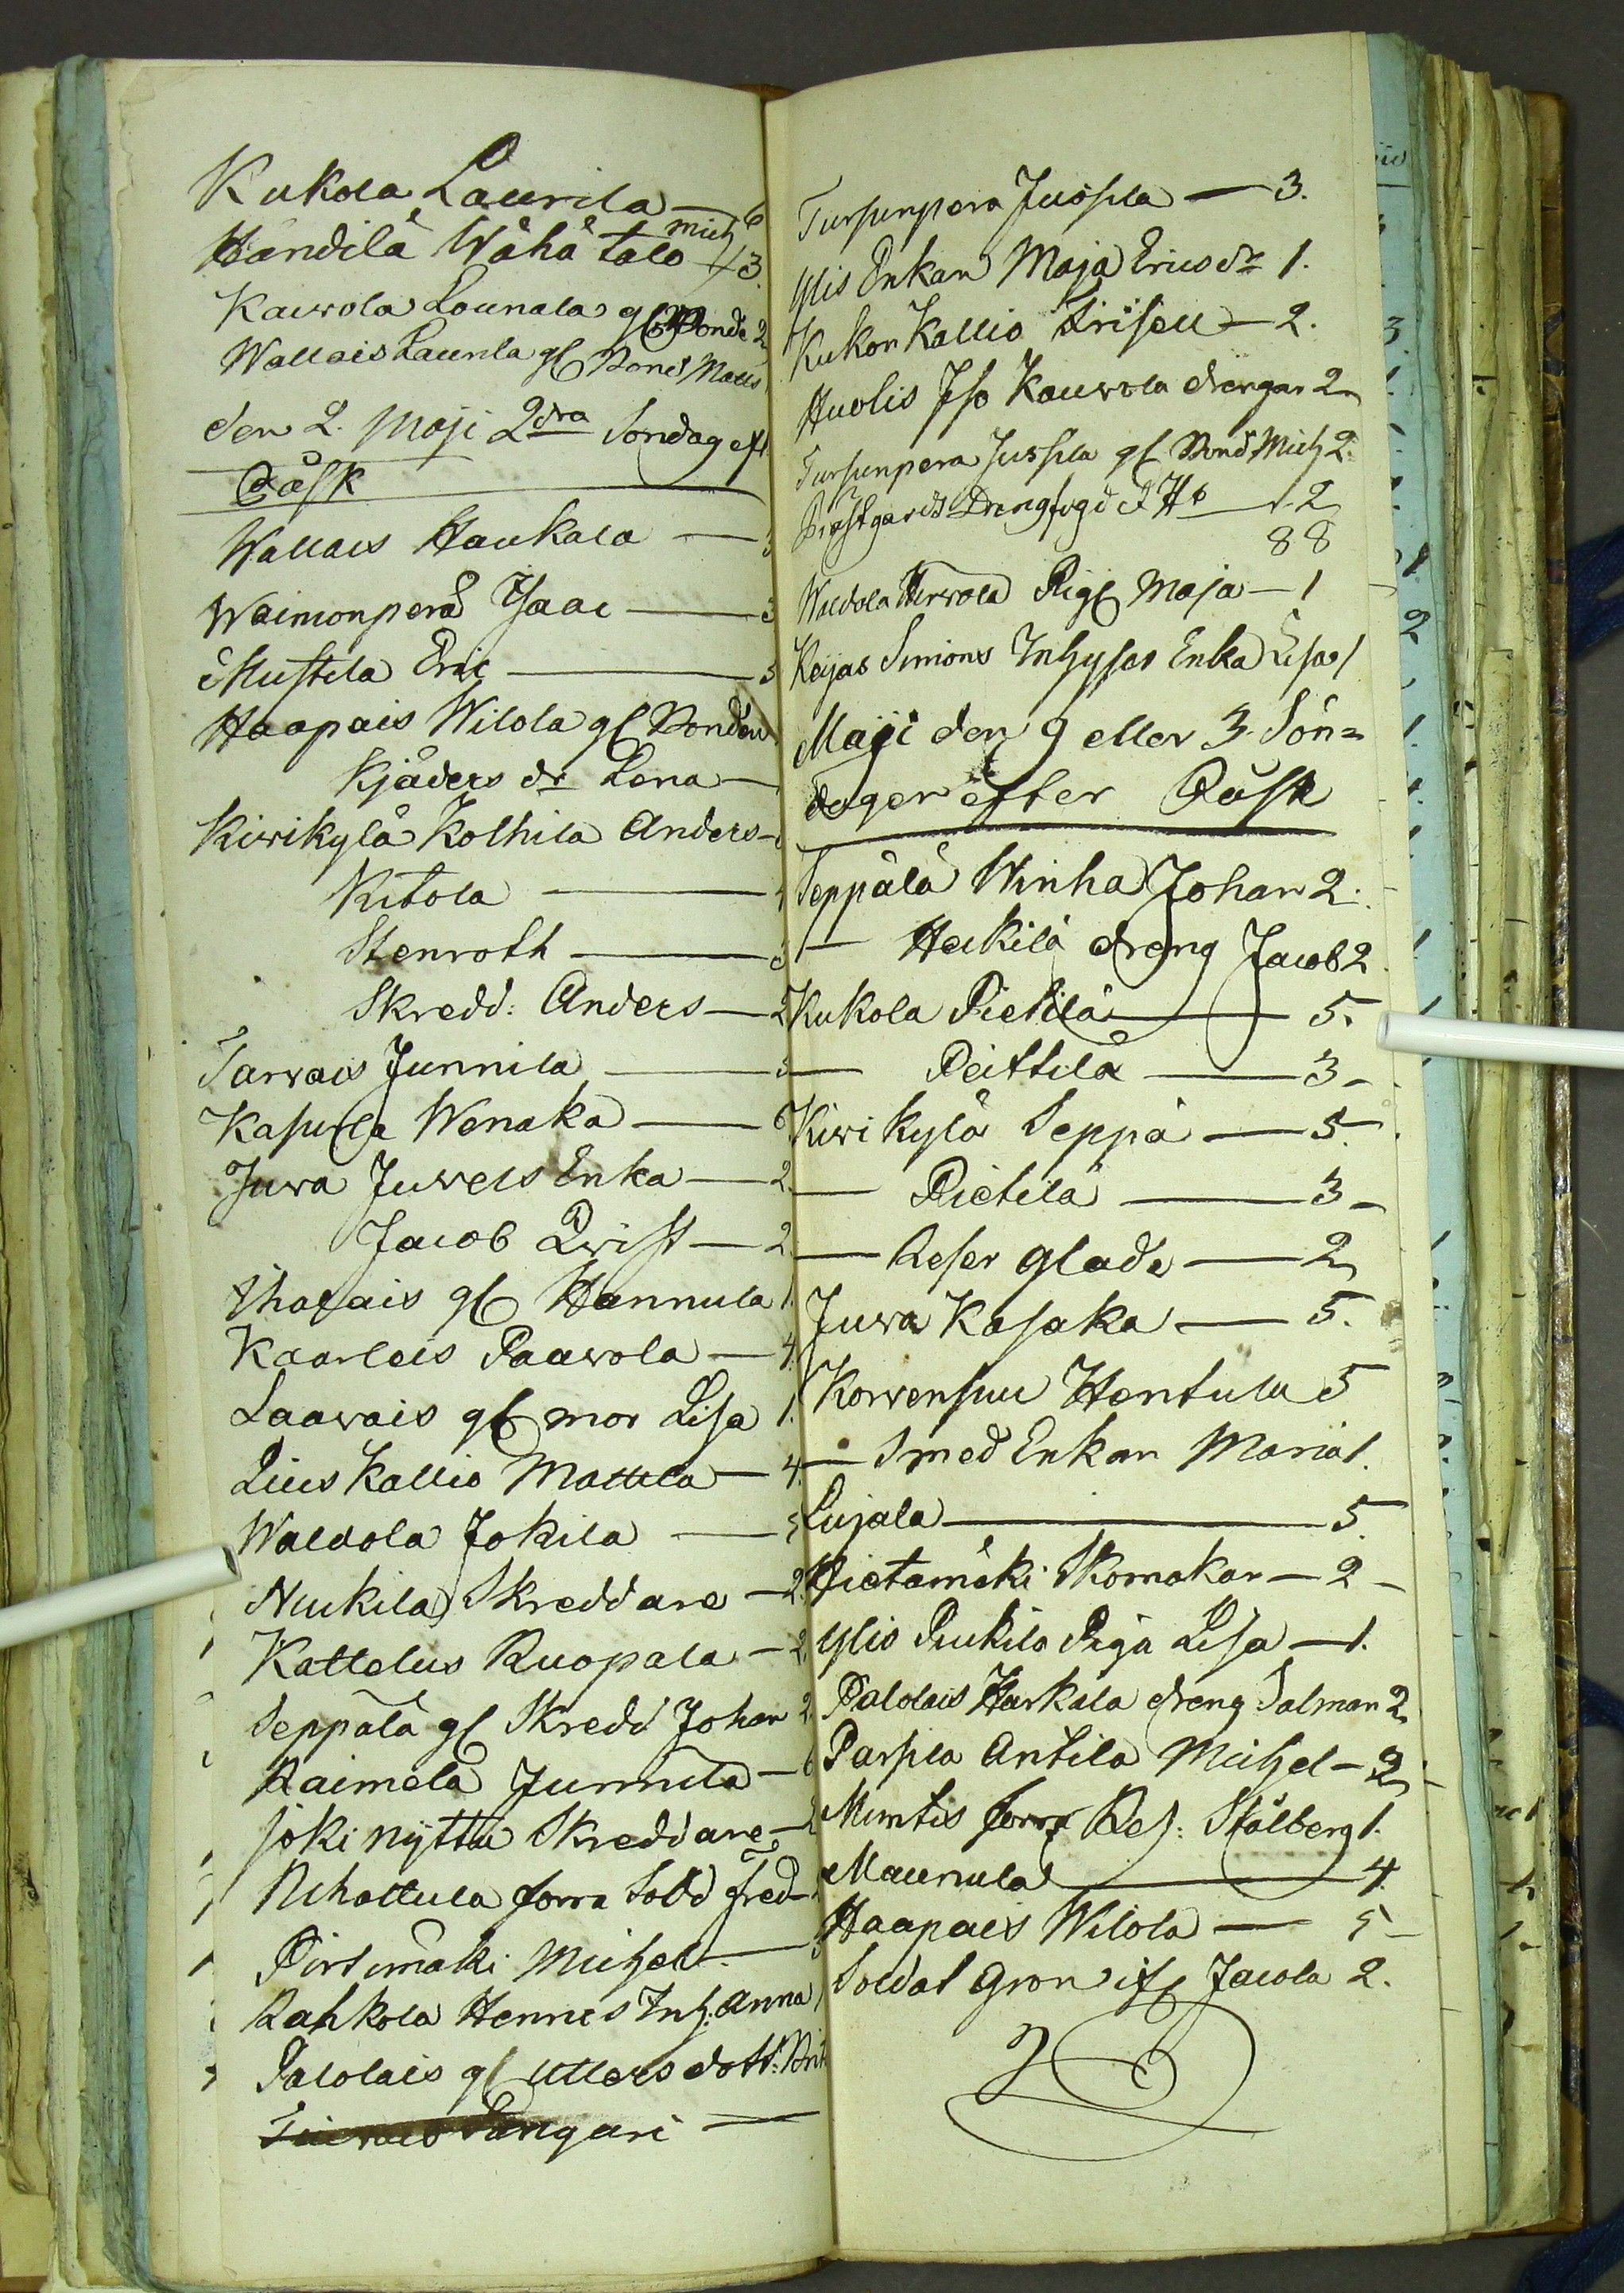 Kukola Laurila — 6
Händilä Wähä talo Mich 3.
Kaurola Lounala gl Bonde 2
Wallais Laurila gl Bond Matts
den 2. Maji 2dra Söndag eft
Påsk
Wallais Haukala — 3
Waimonperä Isaac — 3
Mustila Eric — 3
Haapais Wilola gl Bonden
Kjäders dr Lena —
Kirikylä Kolhila Anders —
Kitola —
Stenroth — 3
Skredd: Anders — 2
Tarvais Junnila — 3
Kasurla Wenaka — 6
Juva Juvels Enka — 2.
Jacob Qvist — 2
gl Hannula 1.
Kaarleis Paavola — 4.
Laavais gl mor Lisa 1.
Lius Kallio Mattila — 4.
Waldola Jokila — 5
Nuukila Skreddare — 2.
Kattelus Ruopala — 2.
Seppälä gl Skredd Johan 2.
Raimela Junnila — 6
Joki nyttu Skreddare — 2
Rihattula forra Sold fred —
Pirtimäki Michel —
Rahkola Hennes Inh: Anna
Palolais gl Utters dott: Brit
Pungari —
Tursunpera Jussila — 3.
Ylis Enkan Maja Ericsdr 1.
Kukon Kallio Frisell — 2.
Huolis Iso Kauvola drengar 2
Tursunpera Jussila gl Bond Mich 2.
Prästgards Drengfogd — 2
88
Wildola Hirvola Pig Maja — 1
Keijas Simons Inhyses Enka Lisa 1
Maji den 9 eller 3. Sön=
dagen efter Påsk
Seppälä Winha Johan 2.
— Heikilä dreng Jacob 2
Kukola Pietilä — 5.
— Peittilä — 3 —
Kiwi kylä Seppä — 5.
— Pietilä — 3 —
— Reser Glade — 2
Juva Kasaka — 5.
Korvensuu Hentula 5
— Smed Enkan Maria 1.
Lujala — 5.
Hietamäki Skomakar — 2 —
Ylis Piukilo Piga Lisa — 1.
Palolais Harkala dreng Salmon 2
Parsila Antila Michel — 2
Mimtis forra Res: Stålberg 1.
Maunula — 4
Haapais Wilola — 5 —
Soldat Grön ifr Jacola 2.